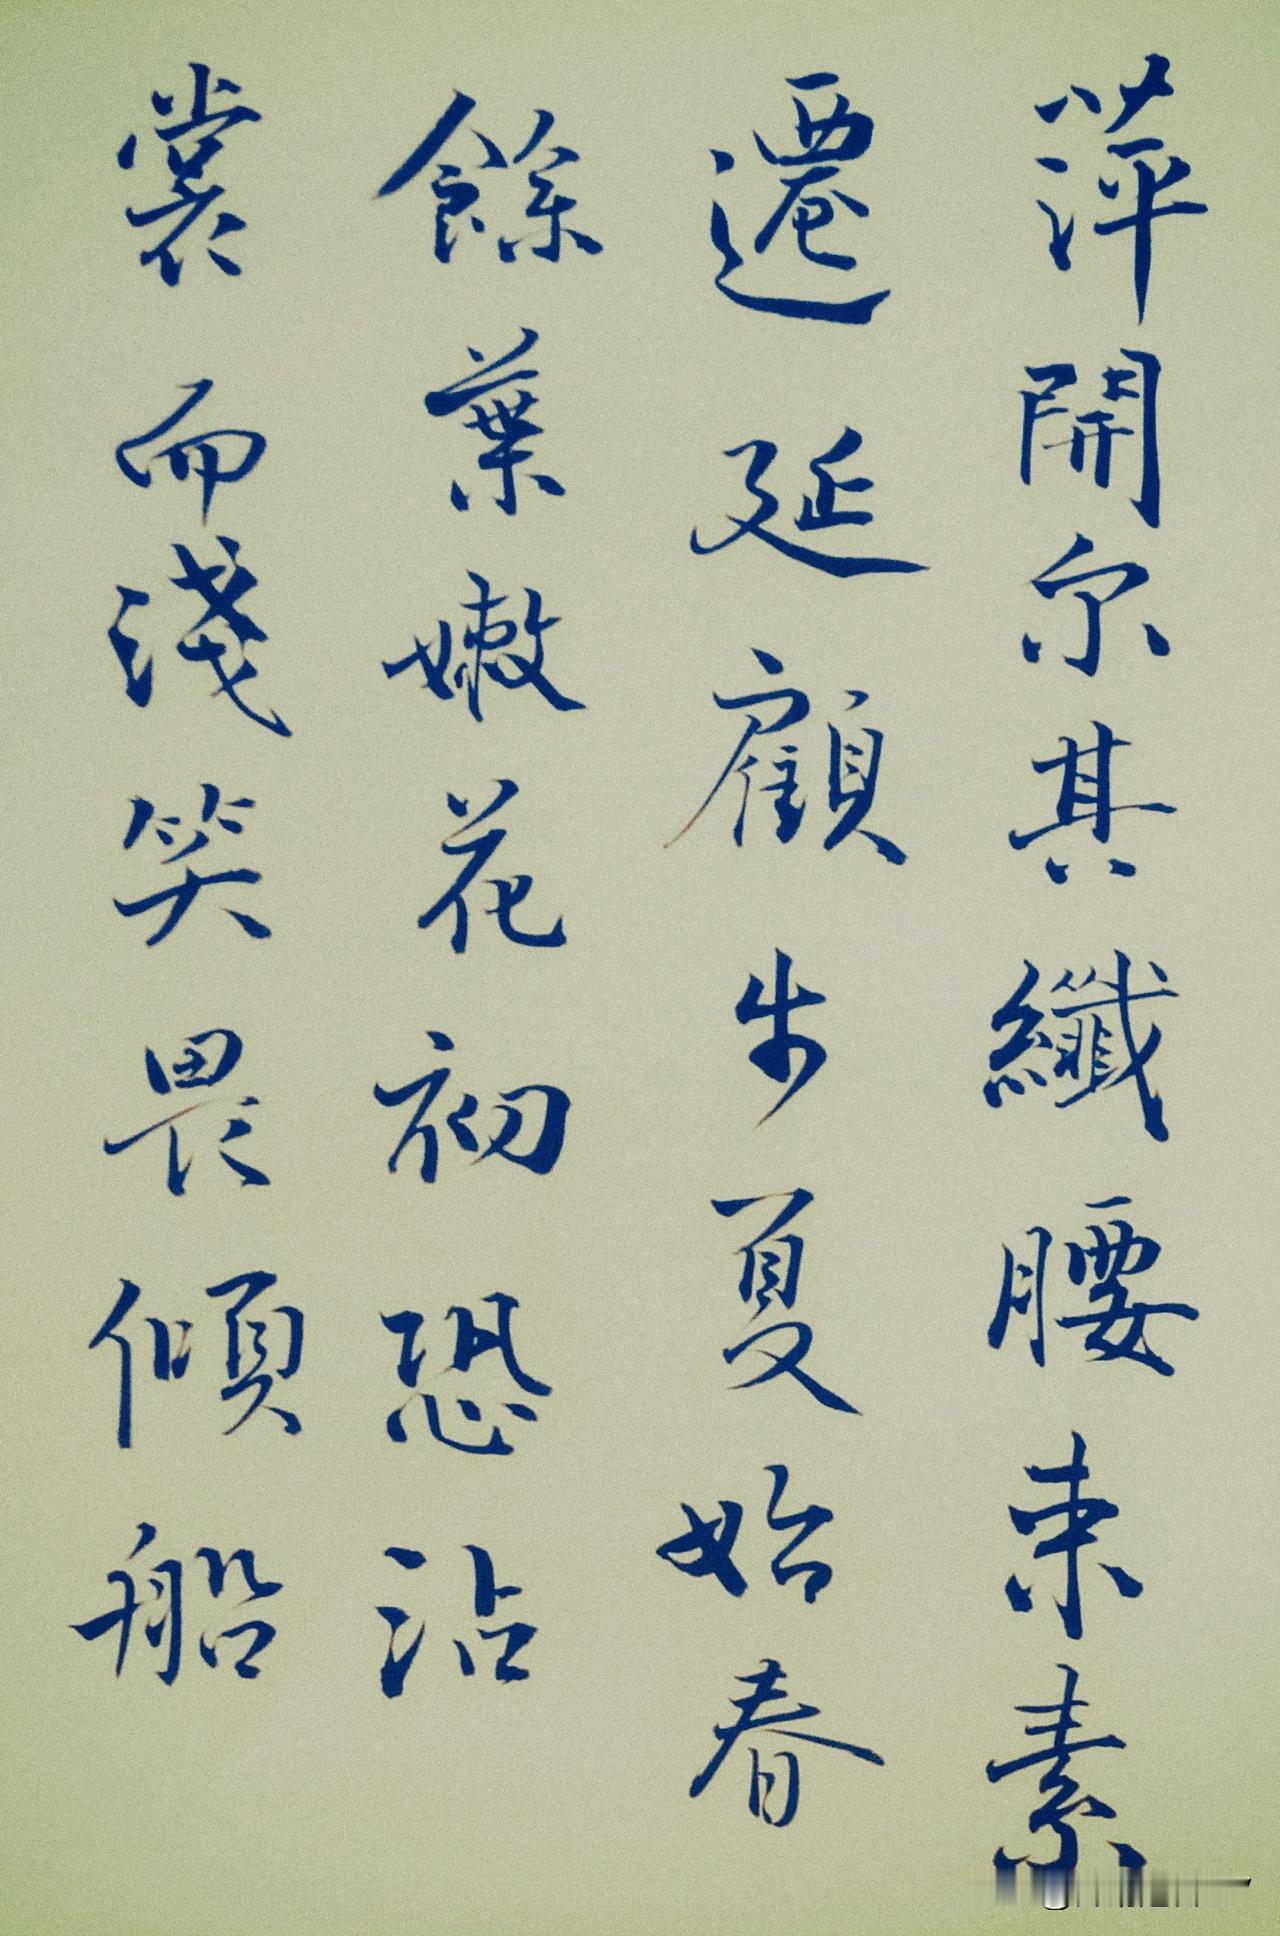 萍開尔其纖腰束素
遷延顧步夏始春
餘葉嫩花初恐沾
裳而淺笑畏傾船